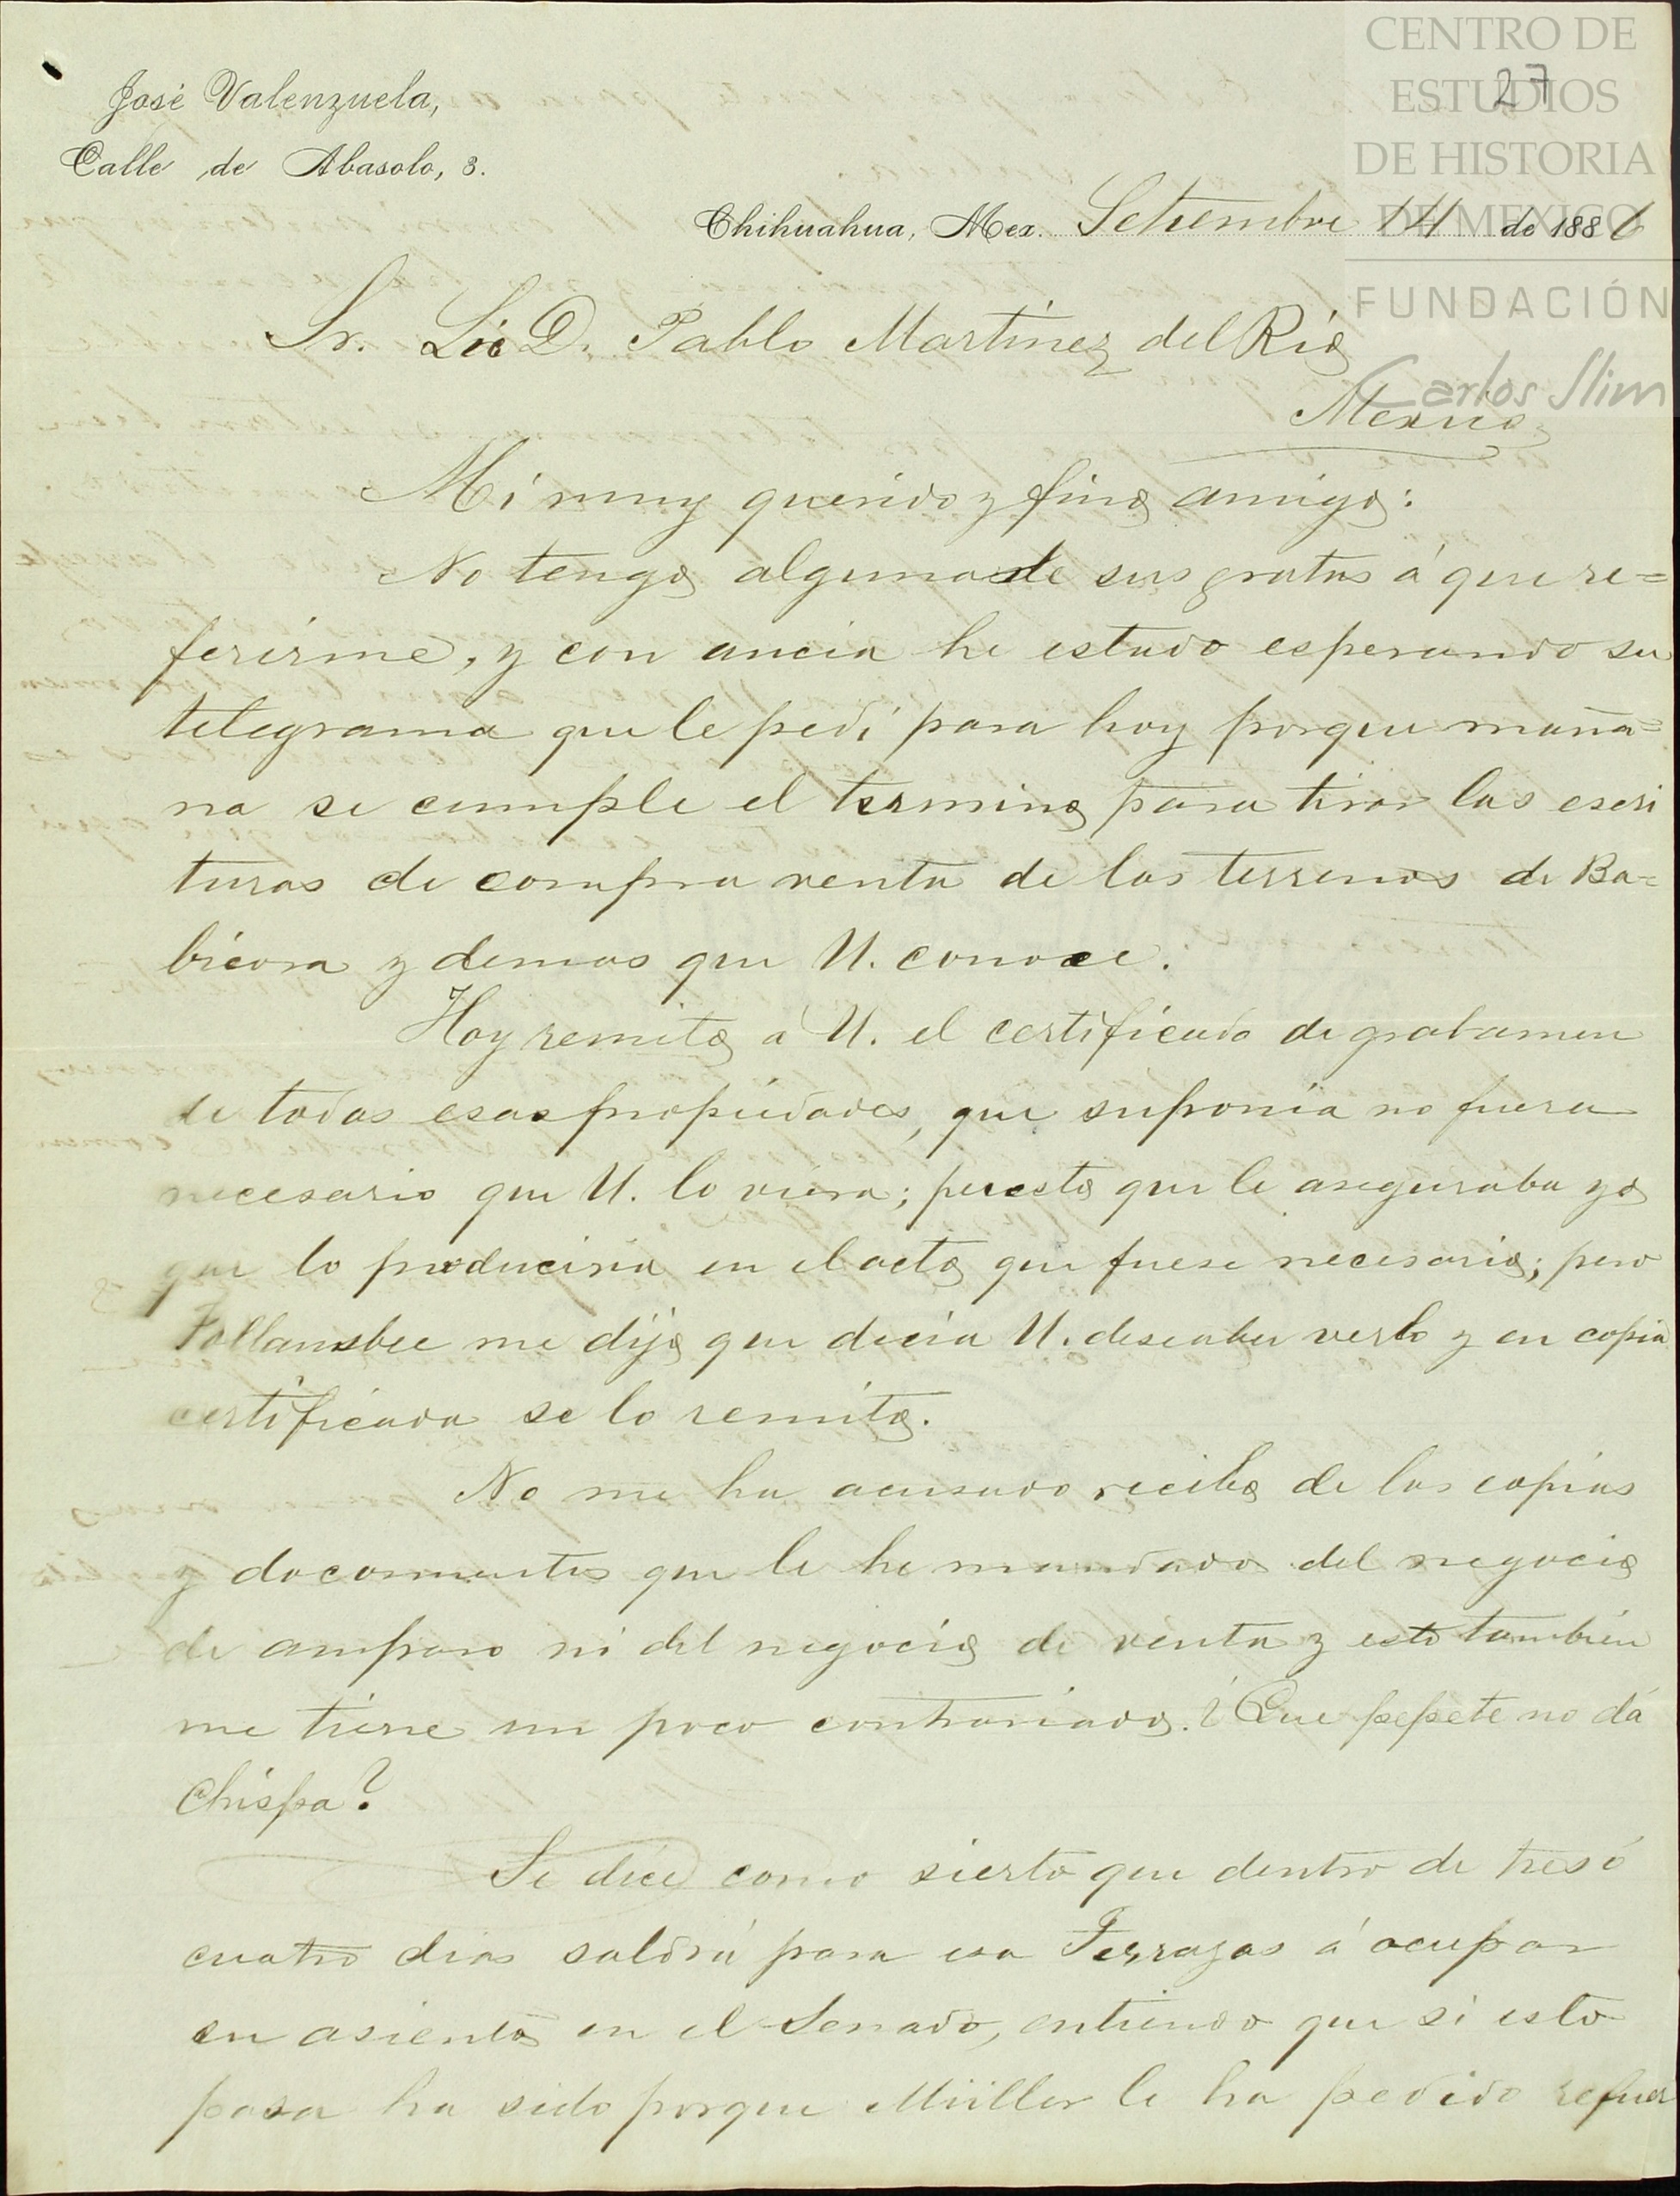 CENTRO DE
ESTUDIOS
DE HISTORIA
DE MEXICO
FUNDACIÓN
Carlos Slim
27
José Valenzuela,
Calle de Abasolo, 8.
Chihuahua, Mex. Setiembre 14 de 1886
Sr. Lic D. Pablo Martínez del Río
Mexico
Mi muy querido y fino amigo:
No tengo alguna de sus gratas á que re=
ferirme, y con ancia he estado esperando su
telegrama que le pedí para hoy porque maña=
na se cumple el termino para tirar las escri
turas de compra venta de los terrenos de Ba=
bicora y demas que U. conoce.
Hoy remito á U. el certificado de grabamen
de todas esas propiedades, que suponia no fuera
necesario que U. lo viera; puesto que le aseguraba yo
que lo produciria en el acto que fuese necesario; pero
Follansbee me dijo que decia U. deseaba verlo y en copia
certificada se lo remito.
No me ha acusado recibo de las copias
y documentos que le he mandado del negocio
de amparo ni del negocio de venta y esto también
me tiene un poco contrariado. ¿Que pepete no dá
Chispa?
Se dice como sierto que dentro de tres ó
cuatro dias saldrá para esa Terrazas á ocupar
su asiento en el Senado, entiendo que si esto
pasa ha sido porque Müller le ha pedido refuer